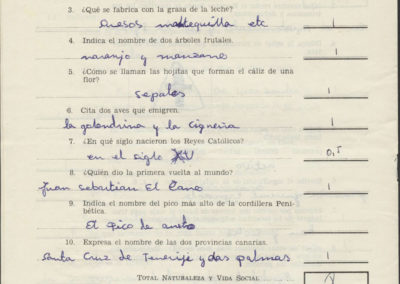 3. ¿Qué se fabrica con la grasa de la leche?
Quesos mantequilla etc 1
4. Indica el nombre de dos árboles frutales.
naranjo y manzano 1
5. ¿Cómo se llaman las hojitas que forman el cáliz de una
flor?
sepalos 1
6. Cita dos aves que emigren.
la golondrina y la cigueña 1
7. ¿En qué siglo nacieron los Reyes Católicos?
en el siglo XV 0,5
8. ¿Quién dio la primera vuelta al mundo?
Juan Sebastian El Cano 1
9. Indica el nombre del pico más alto de la cordillera Peni-
bética.
El Pico de aneto
10. Expresa el nombre de las dos provincias canarias.
Santa Cruz de Tenerife y las palmas 1
TOTAL NATURALEZA Y VIDA SOCIAL